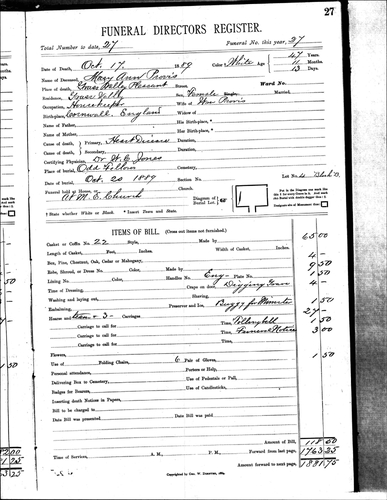 27
FUNERAL DIRECTORS REGISTER.
Total Number to date, 27 Funeral No. this year, 27
Date of Death, Oct. 17 1889 Color White Age 47 Years 4 Months 13 Days
Name of Deceased, Mary Ann Provis
Place of death, Grass Valley Ward No.
Residence, Grass Valley Sex, Female Single Married.
Occupation, Housekeeper Wife of Wm Provis
Birthplace, Cornwall England Widow of
Name of Father, His Birthplace, *
Name of Mother, Her Birthplace, *
Cause of death, Primary, Heart Disease Duration,
Cause of death, Secondary, Duration,
Certifying Physician, Dr W. C. Jones
Place of burial, Odd Fellows Cemetery, Lot No. Block
Date of burial, Oct. 20 1889 Section No.
Funeral held at House, or At M. E. Church Church.
† State whether White or Black. * Insert Town and State.
Diagram of Burial Lot.
ITEMS OF BILL. (Cross out items not furnished.)
Casket or Coffin No. 22 Style, Made by 65.00
Length of Casket, Feet, Inches. Width of Casket, Inches.
Box, Pine, Chestnut, Oak, Cedar or Mahogany, 4 -
Robe, Shroud, or Dress No. Color, Made by 9 50
Lining No. Color, Handles Eng - Plate No. 1 50
Time of Dressing, Crape on door, Digging Grave 4 -
Washing and laying out, Shaving,
Embalming, Preserver and Ice, Buggy for Minister 1 50
Hearse and team + 3 - Carriages. 27 -
Carriage to call for Time, Tolling bell 1 50
Carriage to call for Time, Funeral Notices 3 00
Carriage to call for Time,
Flowers,
Use of Folding Chairs, 6 Pair of Gloves, 1 50
Personal attendance, Porters or Help,
Delivering Box to Cemetery, Use of Pedestals or Pall,
Badges for Bearers, Use of Candlesticks,
Inserting death Notices in Papers,
Bill to be charged to
Date Bill was presented Date Bill was paid
Amount of Bill, 118 50
Time of Services, A. M., P. M. Forward from last page, 1763 25
Amount forward to next page, 1881 75